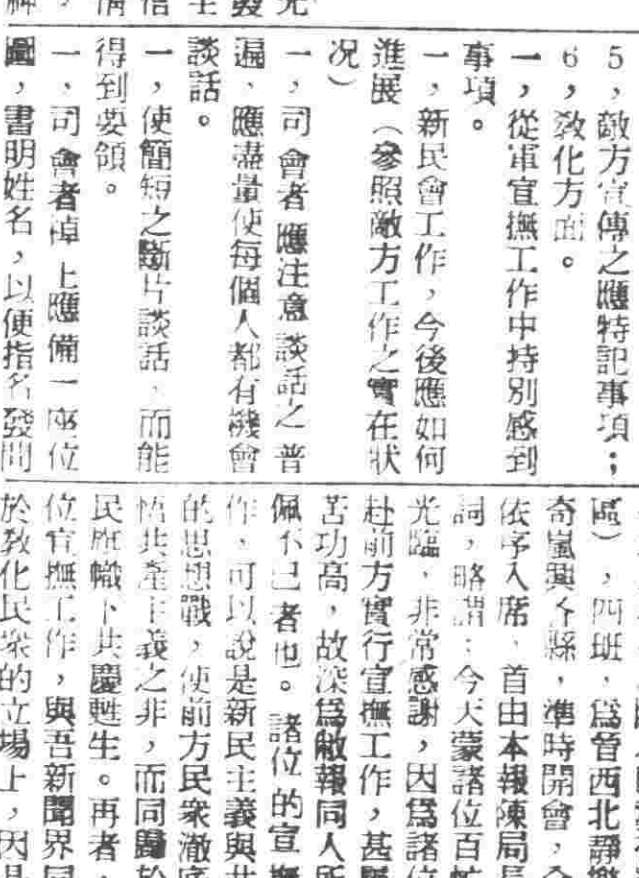 5，敵方宣傳之應特記事項；
6，敎化方面。
一，從軍宣撫工作中特別感到
事項。
一，新民會工作，今後應如何
進展（參照敵方工作之實在狀
况）
一，司會者應注意談話之普
遍，應盡量使每個人都有機會
談話。
一，使簡短之斷片談話，而能
得到要領。
一，司會者棹上應備一座位
圖，書明姓名，以便指名發問
區），四班，爲晉西北靜樂
奇嵐興各縣，準時開會，
依序入席，首由本報陳局長
詞，略謂：今天蒙諸位百忙
光臨，非常感謝，因爲諸位
赴前方實行宣撫工作，甚
苦功高，故深爲敝報同人所
佩不已者也。諸位的宣撫
作，可以說是新民主義與共
的思想戰，使前方民衆澈底
悟共產主義之非，而同歸於
民旗幟下共慶甦生。再者，
位宣撫工作，與吾新聞界同
於敎化民衆的立場上，因